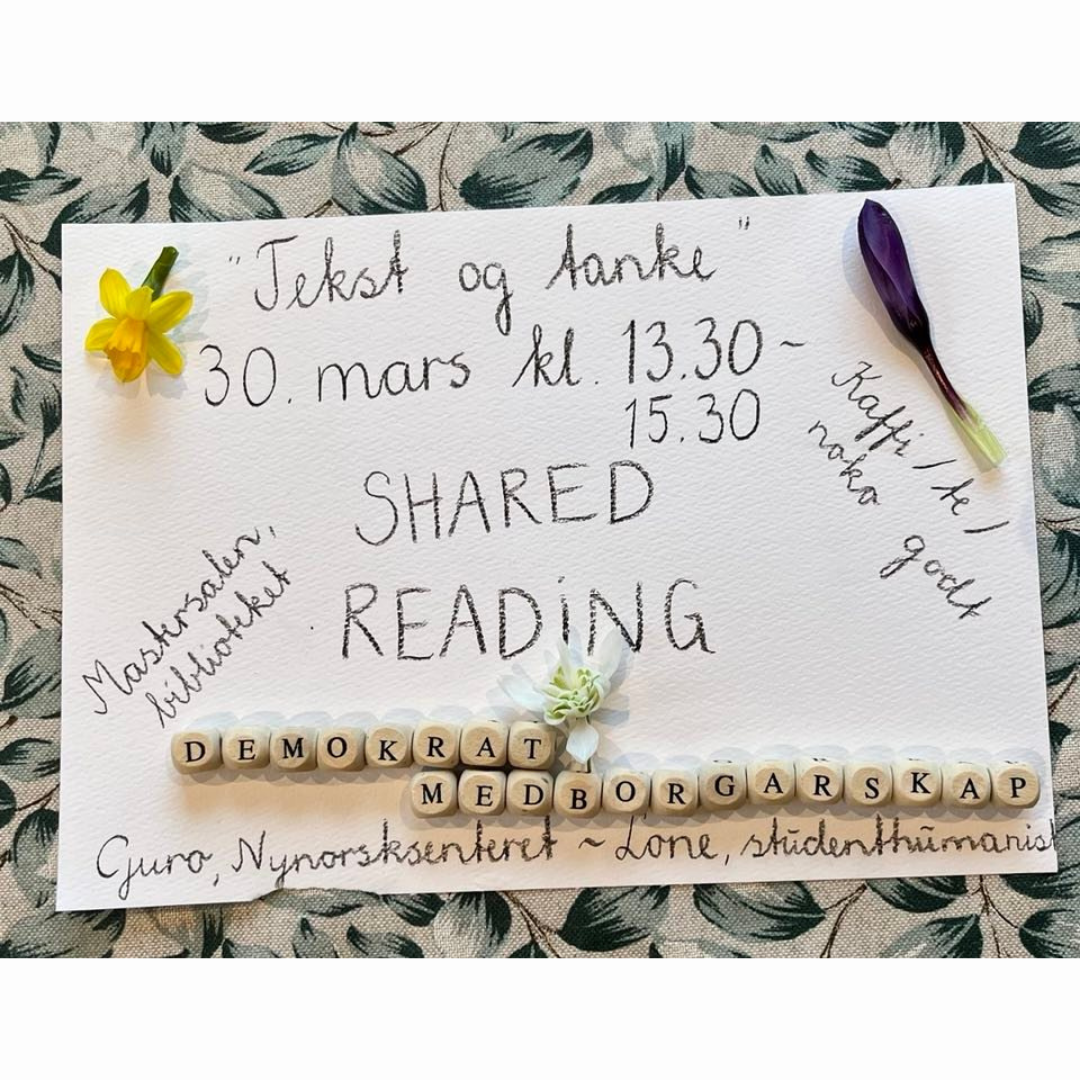 "Tekst og tanke"
30. mars kl. 13.30~
15.30
Kaffi / te /
noko godt
SHARED
READiNG
Mastersalen,
biblioteket
DEMOKRAT
MEDBORGARSKAP
Guro, Nynorsksenteret ~ Lone, studenthumanist